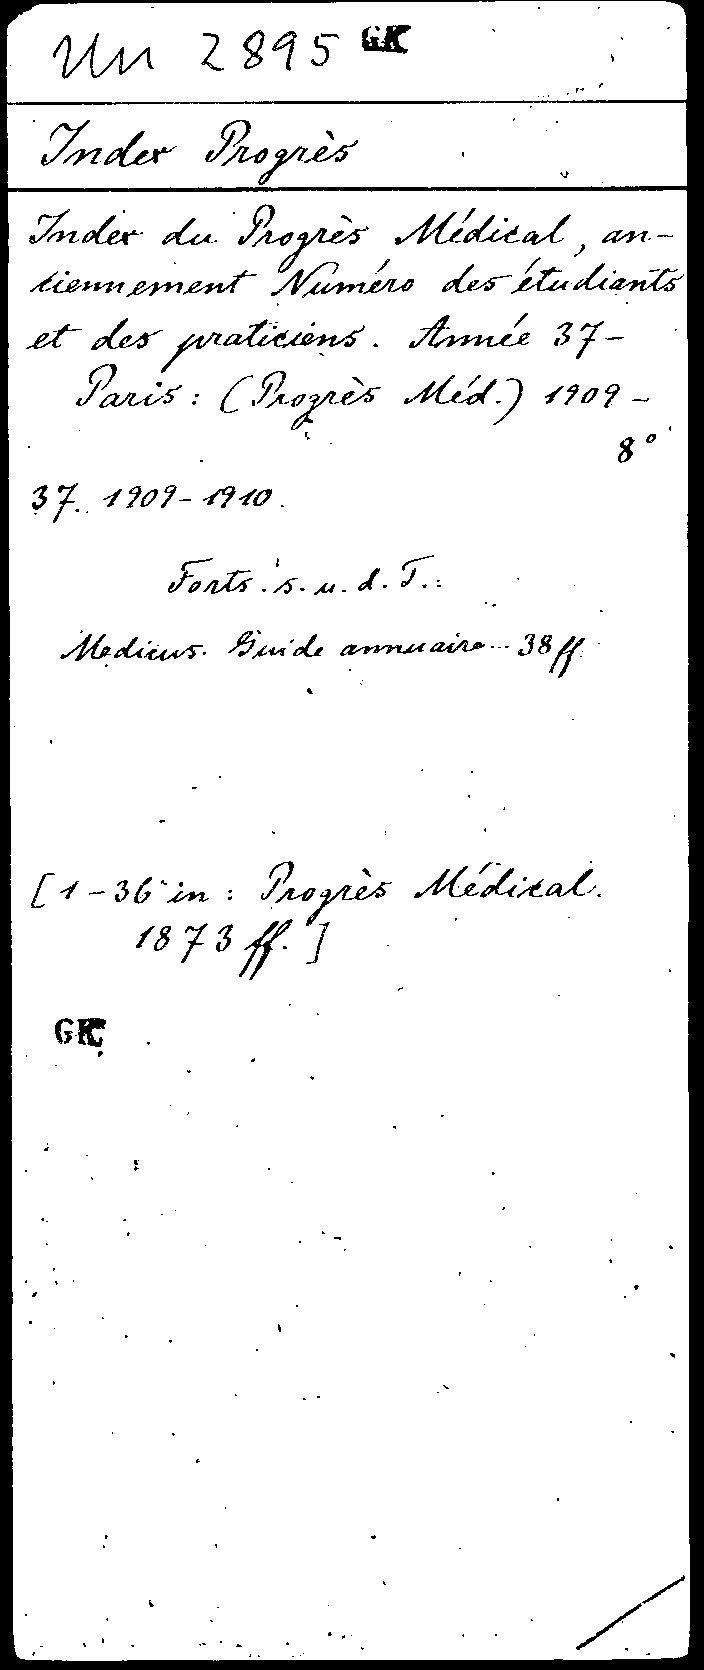 Un 2895 GK
Index Progrès
Index du Progrès Médical, an-
ciennement Numéro des étudiants
et des praticiens. Année 37-
Paris: (Progrès Méd.) 1909-
8°
37. 1909-1910.
Forts. s. u. d. T.:
Medicus. Guide annuaire... 38ff.
[1-36 in: Progrès Médical.
1873 ff.]
GK